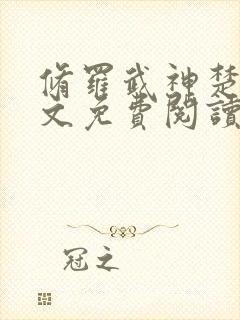 脩羅武神楚
文免費閱讀
冠之